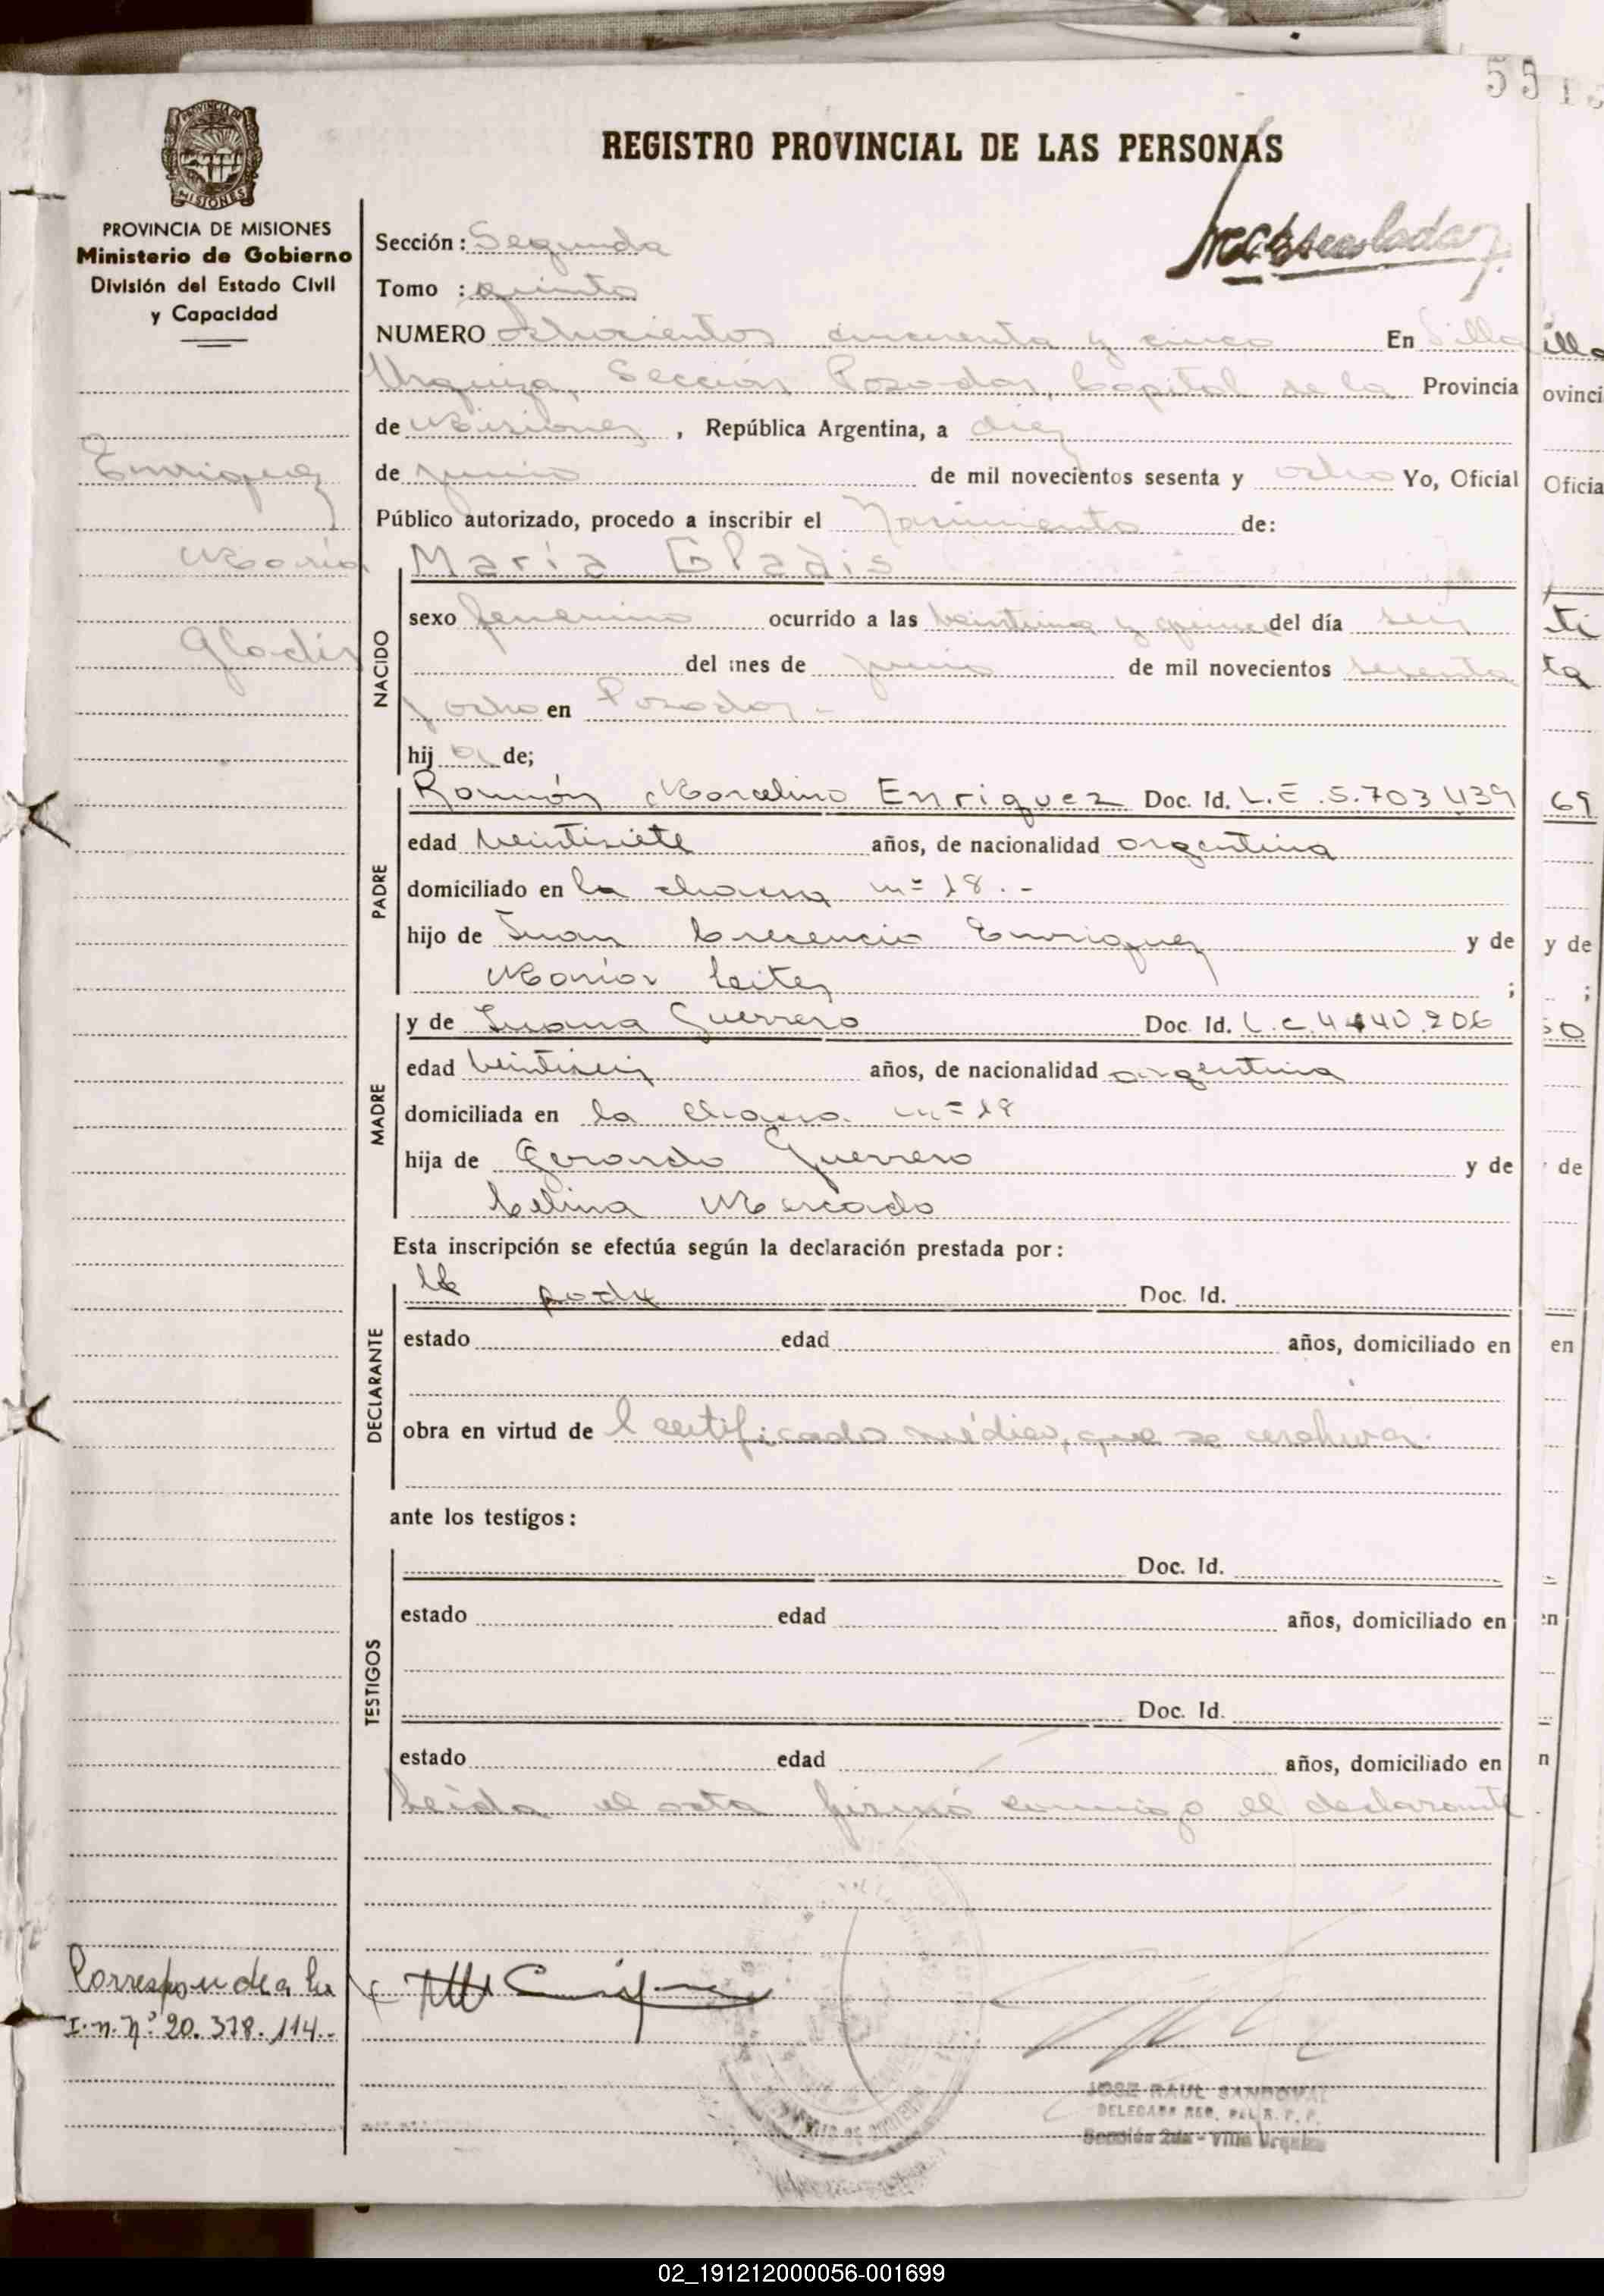 55
REGISTRO PROVINCIAL DE LAS PERSONAS
PROVINCIA DE MISIONES
Ministerio de Gobierno
División del Estado Civil
y Capacidad
Enriquez
María
Gladis
Sección: Segunda
Tomo : quinto
NUMERO ochocientos cincuenta y cinco En Villa
Urquiza, Sección Posadas, Capital de la Provincia
de Misiones, República Argentina, a diez
de junio de mil novecientos sesenta y ocho Yo, Oficial
Público autorizado, procedo a inscribir el Nacimiento de:
NACIDO
María Gladis
sexo femenino ocurrido a las veintiuna y quince del día seis
del mes de junio de mil novecientos sesenta
y ocho en Posadas.-
hij a de;
PADRE
Ramón Marcelino Enriquez Doc. Id. L.E. 5.703.439
edad veintisiete años, de nacionalidad argentina
domiciliado en la chacra nº 18.-
hijo de Juan Crecencio Enriquez y de
María Leites ;
MADRE
y de Juana Guerrero Doc. Id. L.C. 4.440.206
edad veintiseis años, de nacionalidad argentina
domiciliada en la chacra nº 18
hija de Gerardo Guerrero y de
Celina Mercado
Esta inscripción se efectúa según la declaración prestada por:
DECLARANTE
el padre Doc. Id.
estado edad años, domiciliado en
obra en virtud de l certificado médico, que se archiva.
ante los testigos:
TESTIGOS
Doc. Id.
estado edad años, domiciliado en
Doc. Id.
estado edad años, domiciliado en
Leída el acta firmó conmigo el declarante
Corresponde a la
I.n. Nº 20.378.114.-
JOSE RAUL SANDOVAL
DELEGADO REG. DEL R. P. P.
Sección 2da - Villa Urquiza
illa
ovinci
Oficia
ti
ta
69
y de
;
50
de
en
en
n
02_191212000056-001699